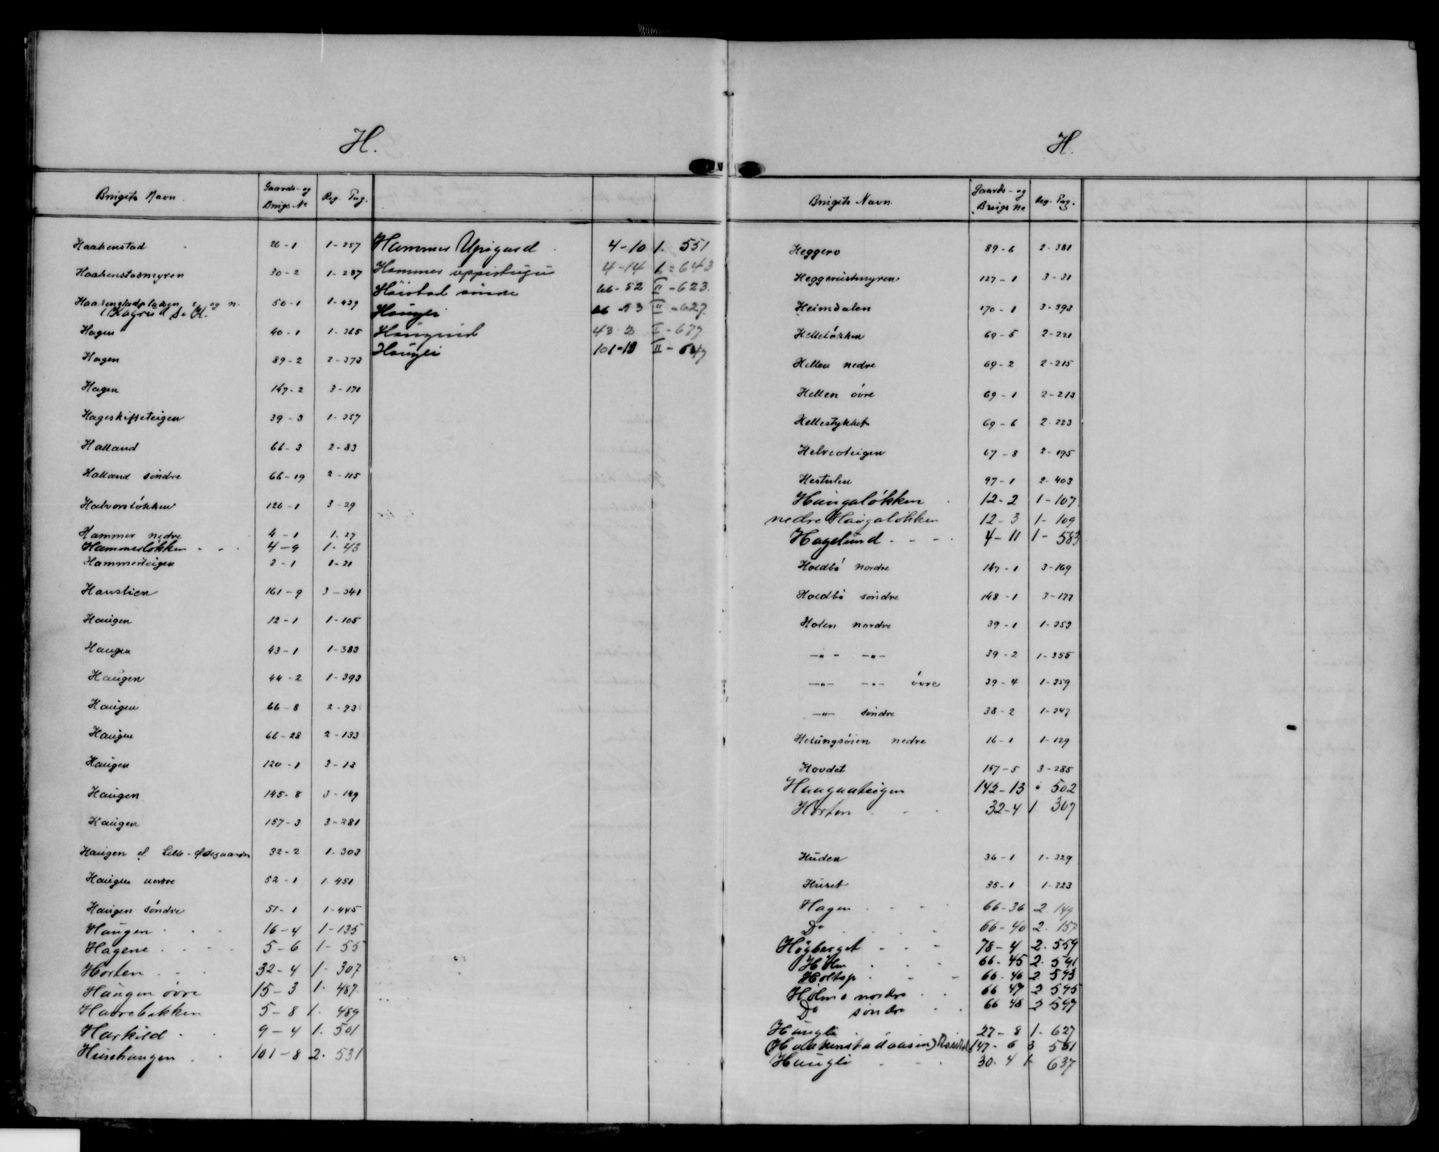 H.
Brugets Navn. Gaards- og Brugs No Reg. Pag.
Haakenstad 26-1 1-257
Haakenstadmyren 30-2 1-287
50-1 1-439
Hagen 40-1 1-365
Hagen 89-2 2-373
Hagen 167-2 3-171
Hageskifteteigen 39-3 1-357
Halland 66-3 2-83
Halland söndre 66-19 2-115
Halvorslökken 126-1 3-29
Hammer nedre 4-1 1-27
Hammerlökken 4-9 1-43
Hammerteigen 2-1 1-21
Hanstien 161-9 3-341
Haugen 12-1 1-105
Haugen 43-1 1-383
Haugen 44-2 1-393
Haugen 66-8 2-93
Haugen 66-28 2-133
Haugen 120-1 3-13
Haugen 145-8 3-149
Haugen 157-3 3-281
Haugen el. Lille-Ödegaarden 32-2 1-303
Haugen 52-1 1-451
Haugen söndre 51-1 1-445
Haugen 16-4 1-135
Hagene 5-6 1-55
Horten 32-4 1-307
Haugen övre 15-3 1-487
Haavebakken 5-8 1-489
Harkild 9-4 1-501
Hushaugen 101-8 2-531
Hammer Upigard 4-10 1-551
Hammer 4-14 1-643
Höistad 66-52 II-623
Haugli 66-53 II-627
Haugerud 43-2 I-677
Haugli 101-13
H.
Brugets Navn Gaards- og Brugs No Reg. Pag.
Heggero 89-6 2-381
Heggerustmyren 127-1 3-31
Heimdalen 170-1 3-393
Hellelökken 69-5 2-221
Hellen nedre 69-2 2-215
Hellen övre 69-1 2-213
Hellestykket 69-6 2-223
Helvedteigen 67-8 2-195
Hesteløkken 97-1 2-403
Haugalökken 12-2 1-107
nedre Haugalökken 12-3 1-109
Hagelund 4-11 1-583
Holdbö nordre 147-1 3-169
Holdbö söndre 148-1 3-177
Holen nordre 39-1 1-353
-"- -"- 39-2 1-355
-"- -"- övre 39-4 1-359
-"- söndre 38-2 1-347
nedre 16-1 1-129
Hovdet 157-5 3-285
Haugaateigen 142-13 502
Horten 32-4 1 307
Huden 36-1 1-329
Huset 35-1 1-323
Hagen 66-36 2 149
Do 66-40 2. 157
Högberget 78-4 2. 559
Holm 66-45 2. 541
Holtop 66-46 2 543
Holmö nordre 66 47 2 545
Do söndre 66 48 2 547
Haugli 27-8 1-627
147-6 3 561
Haugli 30-4 1 637